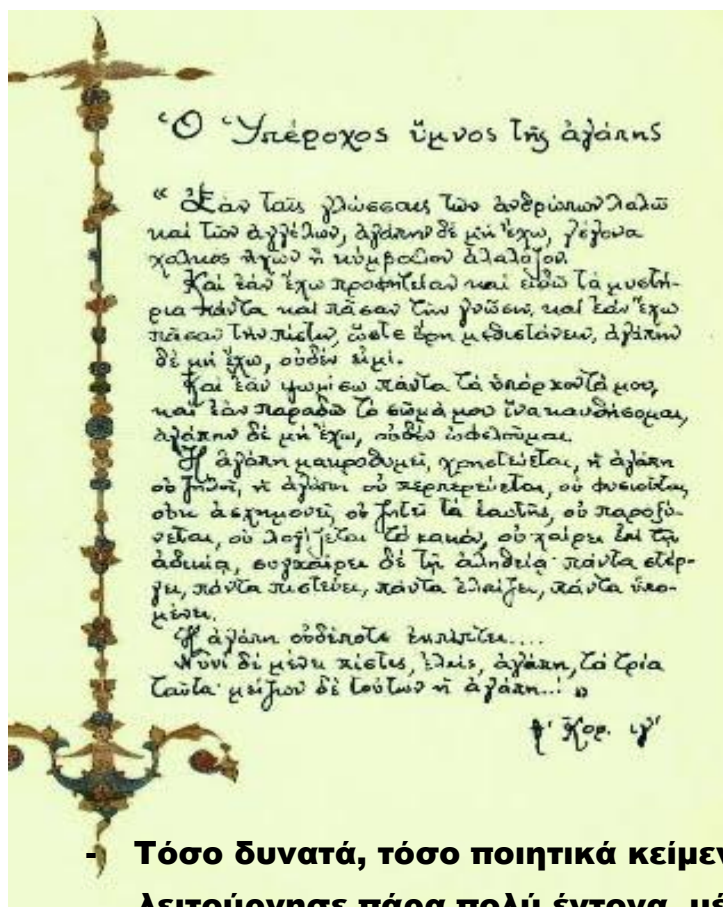 Ὁ Ὑπέροχος ὕμνος τῆς ἀγάπης
“ Ἐὰν ταῖς γλώσσαις τῶν ἀνθρώπων λαλῶ
καὶ τῶν ἀγγέλων, ἀγάπην δὲ μὴ ἔχω, γέγονα
χαλκὸς ἠχῶν ἢ κύμβαλον ἀλαλάζον.
Καὶ ἐὰν ἔχω προφητείαν καὶ εἰδῶ τὰ μυστή-
ρια πάντα καὶ πᾶσαν τὴν γνῶσιν, καὶ ἐὰν ἔχω
πᾶσαν τὴν πίστιν, ὥστε ὄρη μεθιστάνειν, ἀγάπην
δὲ μὴ ἔχω, οὐδέν εἰμι.
Καὶ ἐὰν ψωμίσω πάντα τὰ ὑπάρχοντά μου,
καὶ ἐὰν παραδῶ τὸ σῶμά μου ἵνα καυθήσομαι,
ἀγάπην δὲ μὴ ἔχω, οὐδὲν ὠφελοῦμαι.
Ἡ ἀγάπη μακροθυμεῖ, χρηστεύεται, ἡ ἀγάπη
οὐ ζηλοῖ, ἡ ἀγάπη οὐ περπερεύεται, οὐ φυσιοῦται,
οὐκ ἀσχημονεῖ, οὐ ζητεῖ τὰ ἑαυτῆς, οὐ παροξύ-
νεται, οὐ λογίζεται τὸ κακόν, οὐ χαίρει ἐπὶ τῇ
ἀδικίᾳ, συγχαίρει δὲ τῇ ἀληθείᾳ· πάντα στέρ-
γει, πάντα πιστεύει, πάντα ἐλπίζει, πάντα ὑπο-
μένει.
Ἡ ἀγάπη οὐδέποτε ἐκπίπτει....
Νυνὶ δὲ μένει πίστις, ἐλπίς, ἀγάπη, τὰ τρία
ταῦτα· μείζων δὲ τούτων ἡ ἀγάπη..! »
Κορ. ιγ'
- Τόσο δυνατά, τόσο ποιητικά
λειτούργησε πάρα πολύ έντονα,